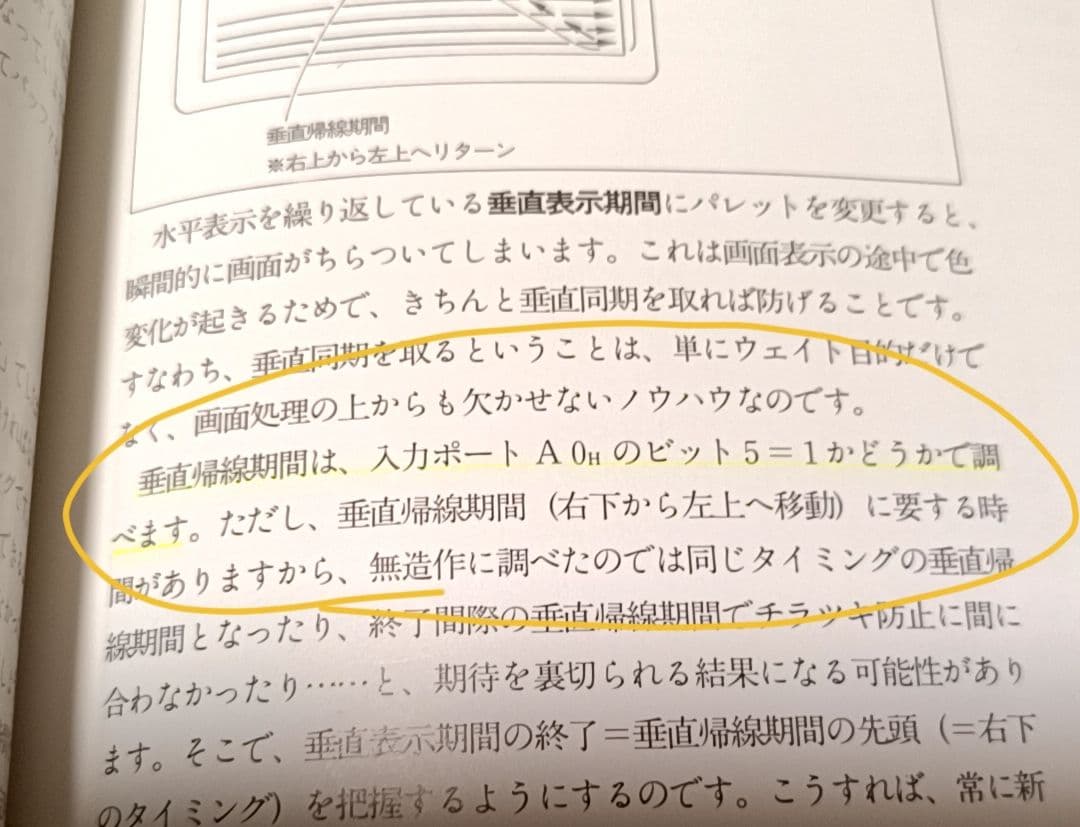 垂直帰線期間
※右上から左上へリターン
水平表示を繰り返している垂直表示期間にパレットを変更すると、
瞬間的に画面がちらついてしまいます。これは画面表示の途中で色
変化が起きるためで、きちんと垂直同期を取れば防げることです。
すなわち、垂直同期を取るということは、単にウェイト目的だけで
なく、画面処理の上からも欠かせないノウハウなのです。
垂直帰線期間は、入力ポートA0Hのビット5＝1かどうかで調
べます。ただし、垂直帰線期間（右下から左上へ移動）に要する時
間がありますから、無造作に調べたのでは同じタイミングの垂直帰
線期間となったり、終了間際の垂直帰線期間でチラツキ防止に間に
合わなかったり……と、期待を裏切られる結果になる可能性があり
ます。そこで、垂直表示期間の終了＝垂直帰線期間の先頭（＝右下
のタイミング）を把握するようにするのです。こうすれば、常に新